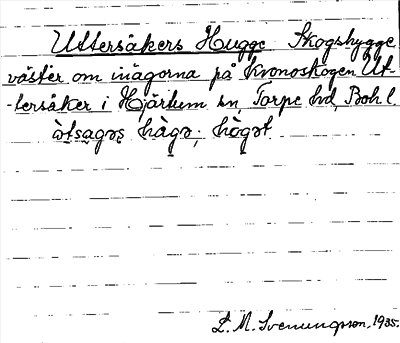 Uttersåkers Hugge Skogshygge
väster om inägorna på Kronoskogen Ut-
-tersåker i Hjärtum sn, Torpe hd, Boh l.
ẁtsagəs hàgə; hògət
L. M. Svenungsson, 1935.